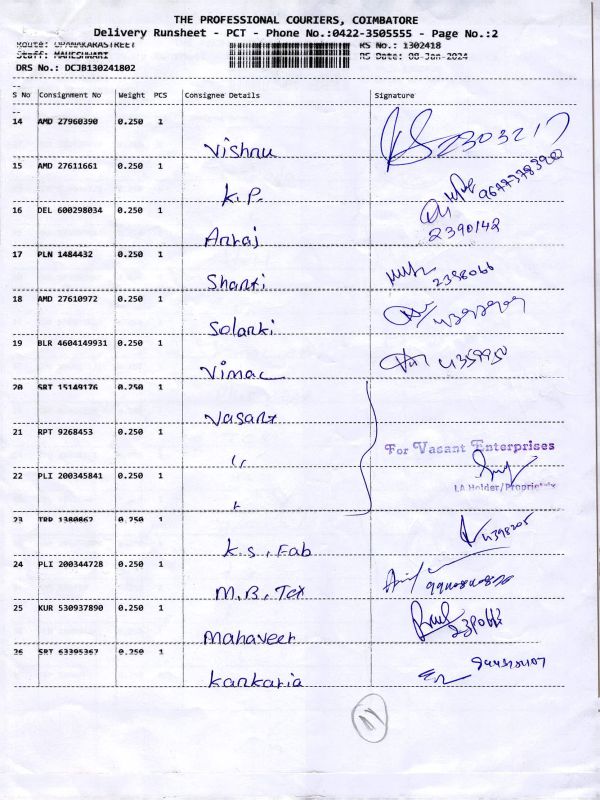 THE PROFESSIONAL COURIERS, COIMBATORE
Delivery Runsheet - PCT - Phone No.:0422-3505555 - Page No.:2
Route: OPANAKARASTREET RS No.: 1302418
Staff: MAHESHWARI RS Date: 08-Jan-2024
DRS No.: DCJB130241802
S No Consignment No Weight PCS Consignee Details Signature
14 AMD 27960390 0.250 1
Vishnu
15 AMD 27611661 0.250 1
K.P.
16 DEL 600298034 0.250 1
2390142
17 PLN 1484432 0.250 1
Shanti
2398066
18 AMD 27610972 0.250 1
Solanki
19 BLR 4604149931 0.250 1
Vimal
20 SRT 15149176 0.250 1
Vasant
21 RPT 9268453 0.250 1
"
For Vasant Enterprises
22 PLI 200345841 0.250 1
"
LA Holder/Proprietrix
23 TRP 1380862 0.250 1
K.S. Fab
24 PLI 200344728 0.250 1
M.B. Tex
25 KUR 530937890 0.250 1
Mahaveer
26 SRT 63395367 0.250 1
Kankaria
11